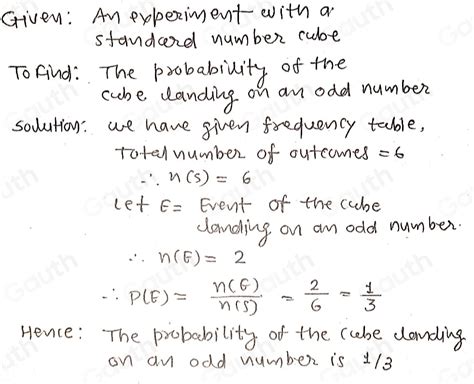 Given: An experiment with a
standard number cube
To find: The probability of the
cube landing on an odd number
solution: we have given frequency table,
Total number of outcomes = 6
∴ n(s) = 6
Let E = Event of the cube
landing on an odd number.
∴ n(E) = 2
∴ P(E) = n(E)/n(s) = 2/6 = 1/3
Hence: The probability of the cube landing
on an odd number is 1/3